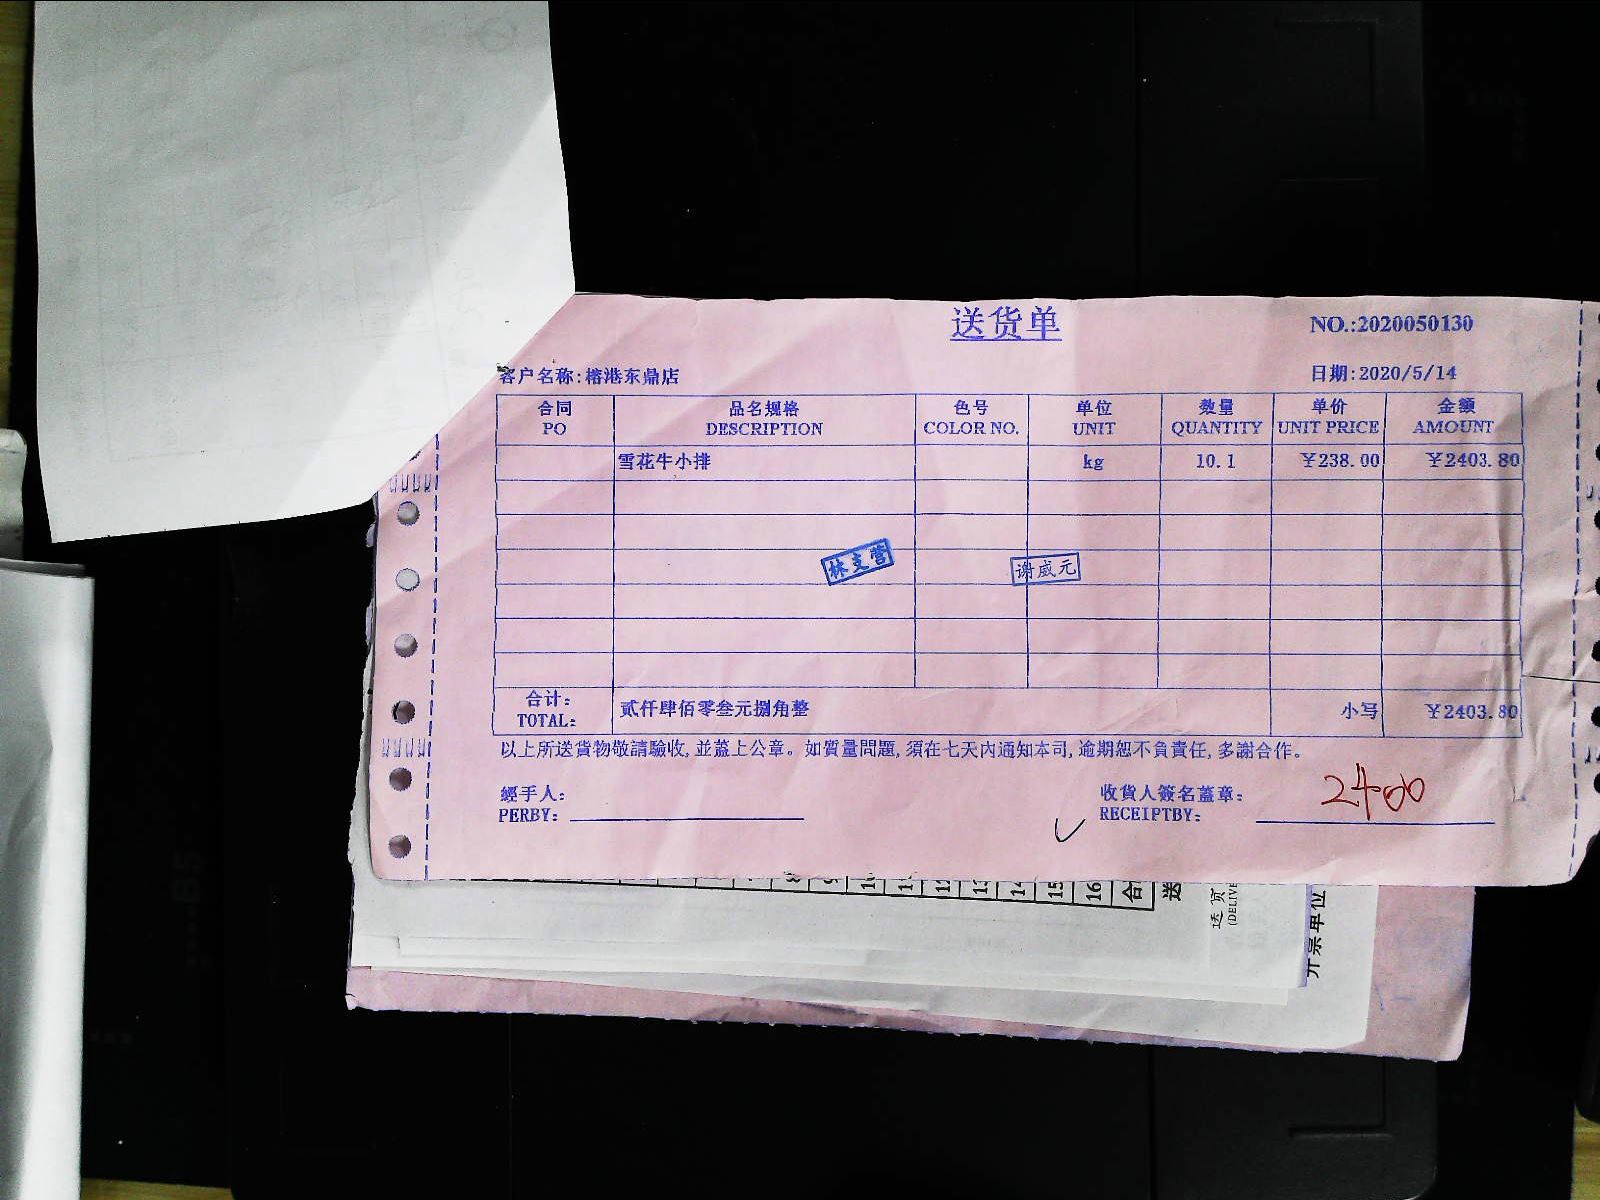 送货单
NO.:2020050130
客户名称:榕港东鼎店
日期:2020/5/14
合同 品名规格 色号 单位 数量 单价 金额
PO DESCRIPTION COLOR NO. UNIT QUANTITY UNIT PRICE AMOUNT
雪花牛小排 kg 10.1 ¥238.00 ¥2403.80
林支营 谢威元
合计:
TOTAL:
贰仟肆佰零叁元捌角整 小写 ¥2403.80
以上所送貨物敬請驗收,並蓋上公章。如質量問題,須在七天內通知本司,逾期恕不負責任,多謝合作。
經手人: 收貨人簽名蓋章: 2400
PERBY: RECEIPTBY:
11 12 13 14 15 16 合 送
送货
(DELIVE
开票单位